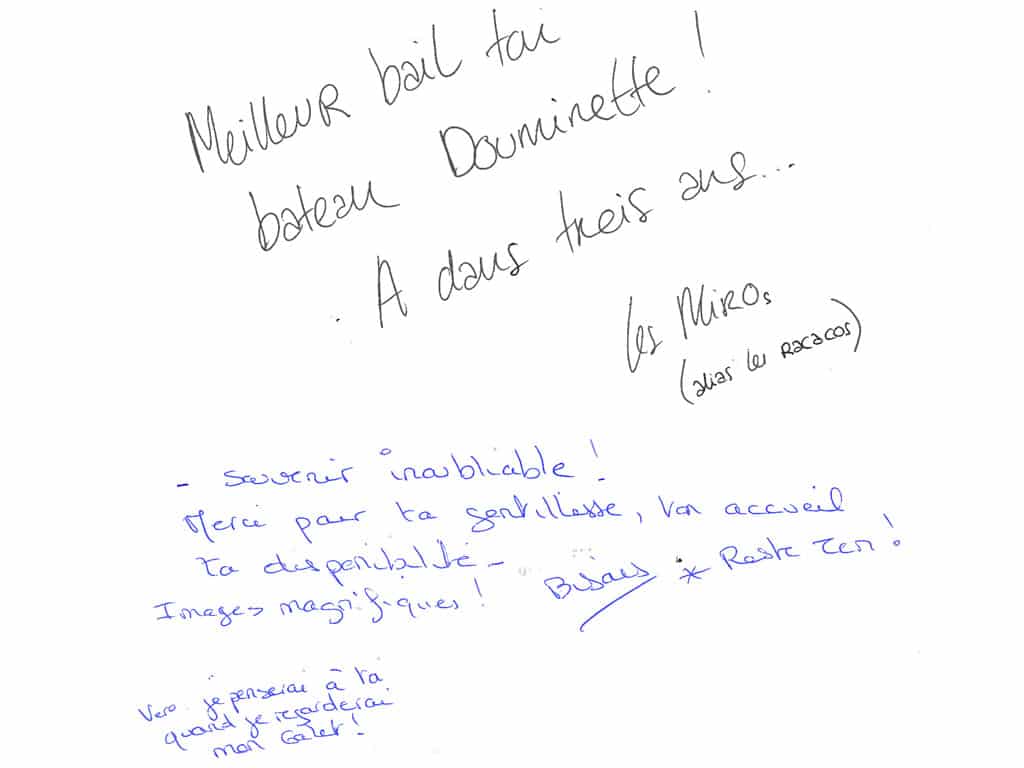 Meilleur bail toi
bateau Douminette !
A dans trois ans...
les MIROs
(alias les RACACOS)
- Souvenir inoubliable !
Merci pour ta gentillesse, ton accueil
ta disponibilité -
Images magnifiques ! Bisous * Reste Zen !
Vero je penserai à toi
quand je regarderai
mon Galet !